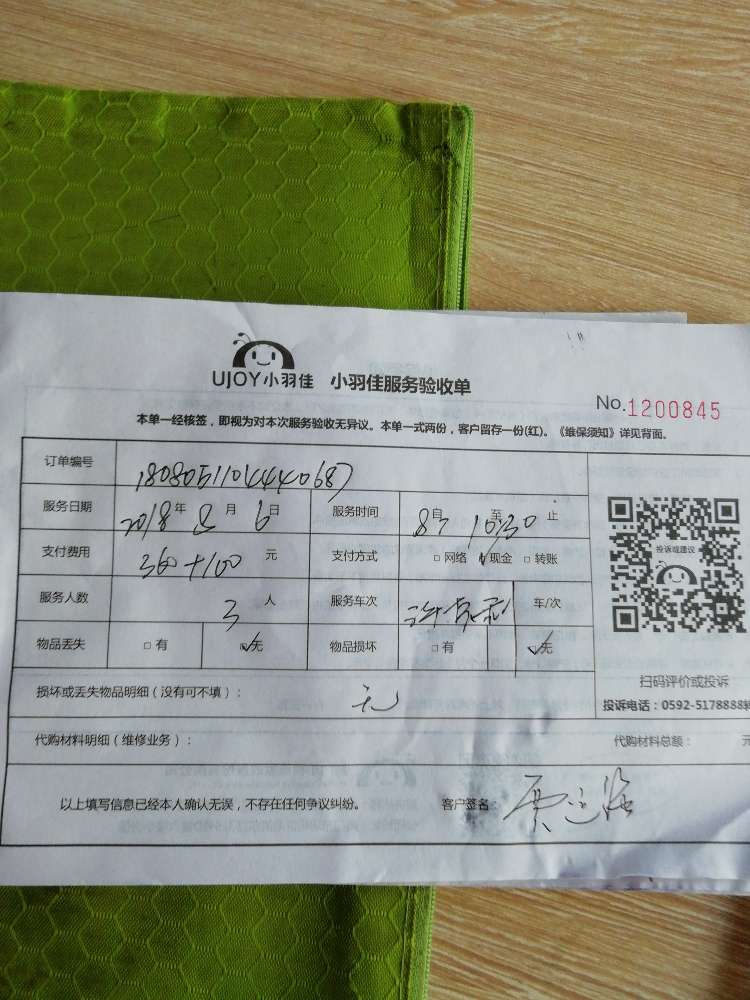 UJOY小羽佳 小羽佳服务验收单
No.1200845
本单一经核签，即视为对本次服务验收无异议。本单一式两份，客户留存一份(红)。《维保须知》详见背面。
订单编号 180805110444068
服务日期 2018年8月6日 服务时间 8自 至 10:30止
支付费用 360+100 元 支付方式 □网络 ☑现金 □转账
服务人数 3人 服务车次 车/次
物品丢失 □有 ☑无 物品损坏 □有 ☑无
损坏或丢失物品明细（没有可不填）： 无
代购材料明细（维修业务）： 代购材料总额：
以上填写信息已经本人确认无误，不存在任何争议纠纷。 客户签名：
投诉或建议
扫码评价或投诉
投诉电话：0592-5178888